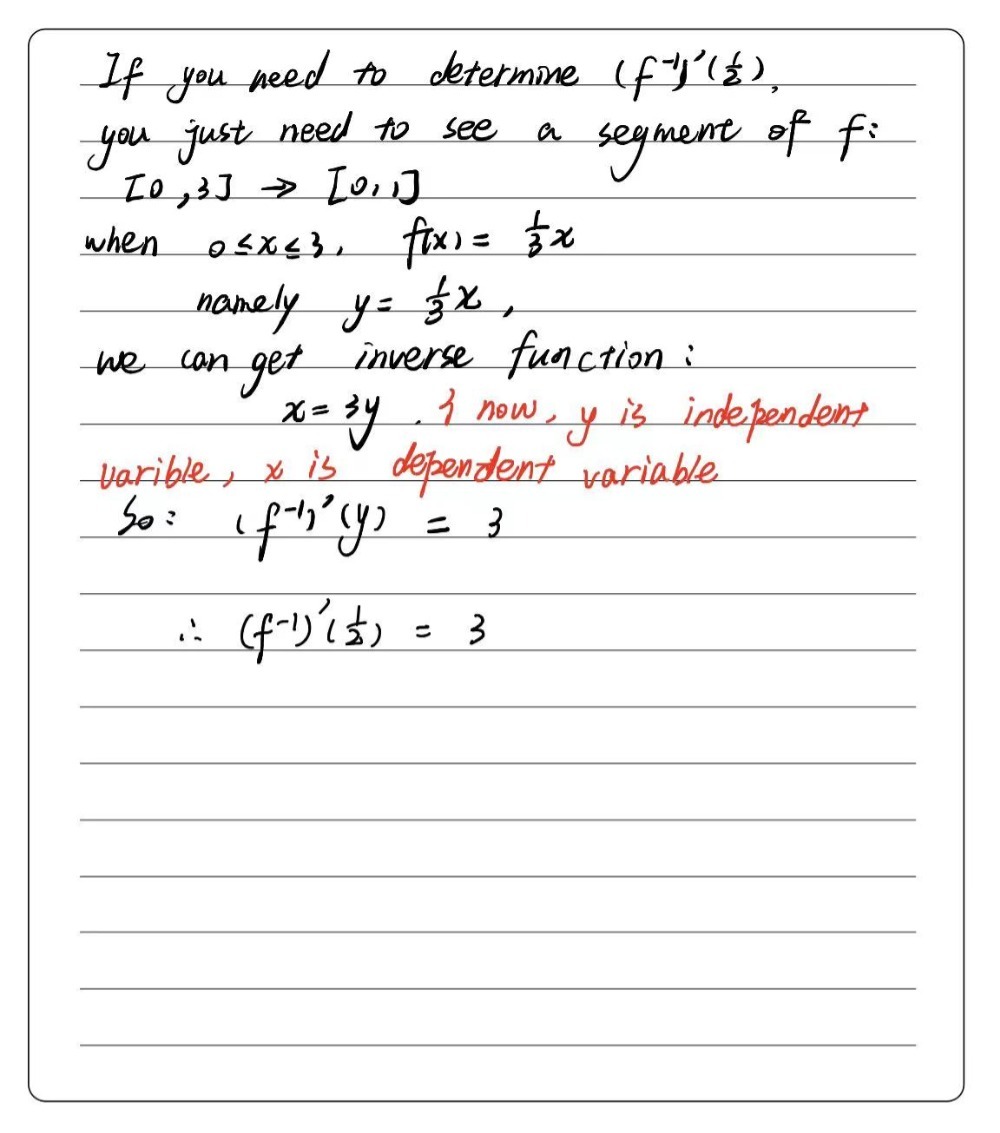 If you need to determine (f⁻¹)'(1/2),
you just need to see a segment of f:
[0,3] → [0,1]
when 0≤x≤3, f(x) = 1/3 x
namely y = 1/3 x,
we can get inverse function:
x = 3y. { now, y is independent
varible, x is dependent variable
So: (f⁻¹)'(y) = 3
∴ (f⁻¹)'(1/2) = 3